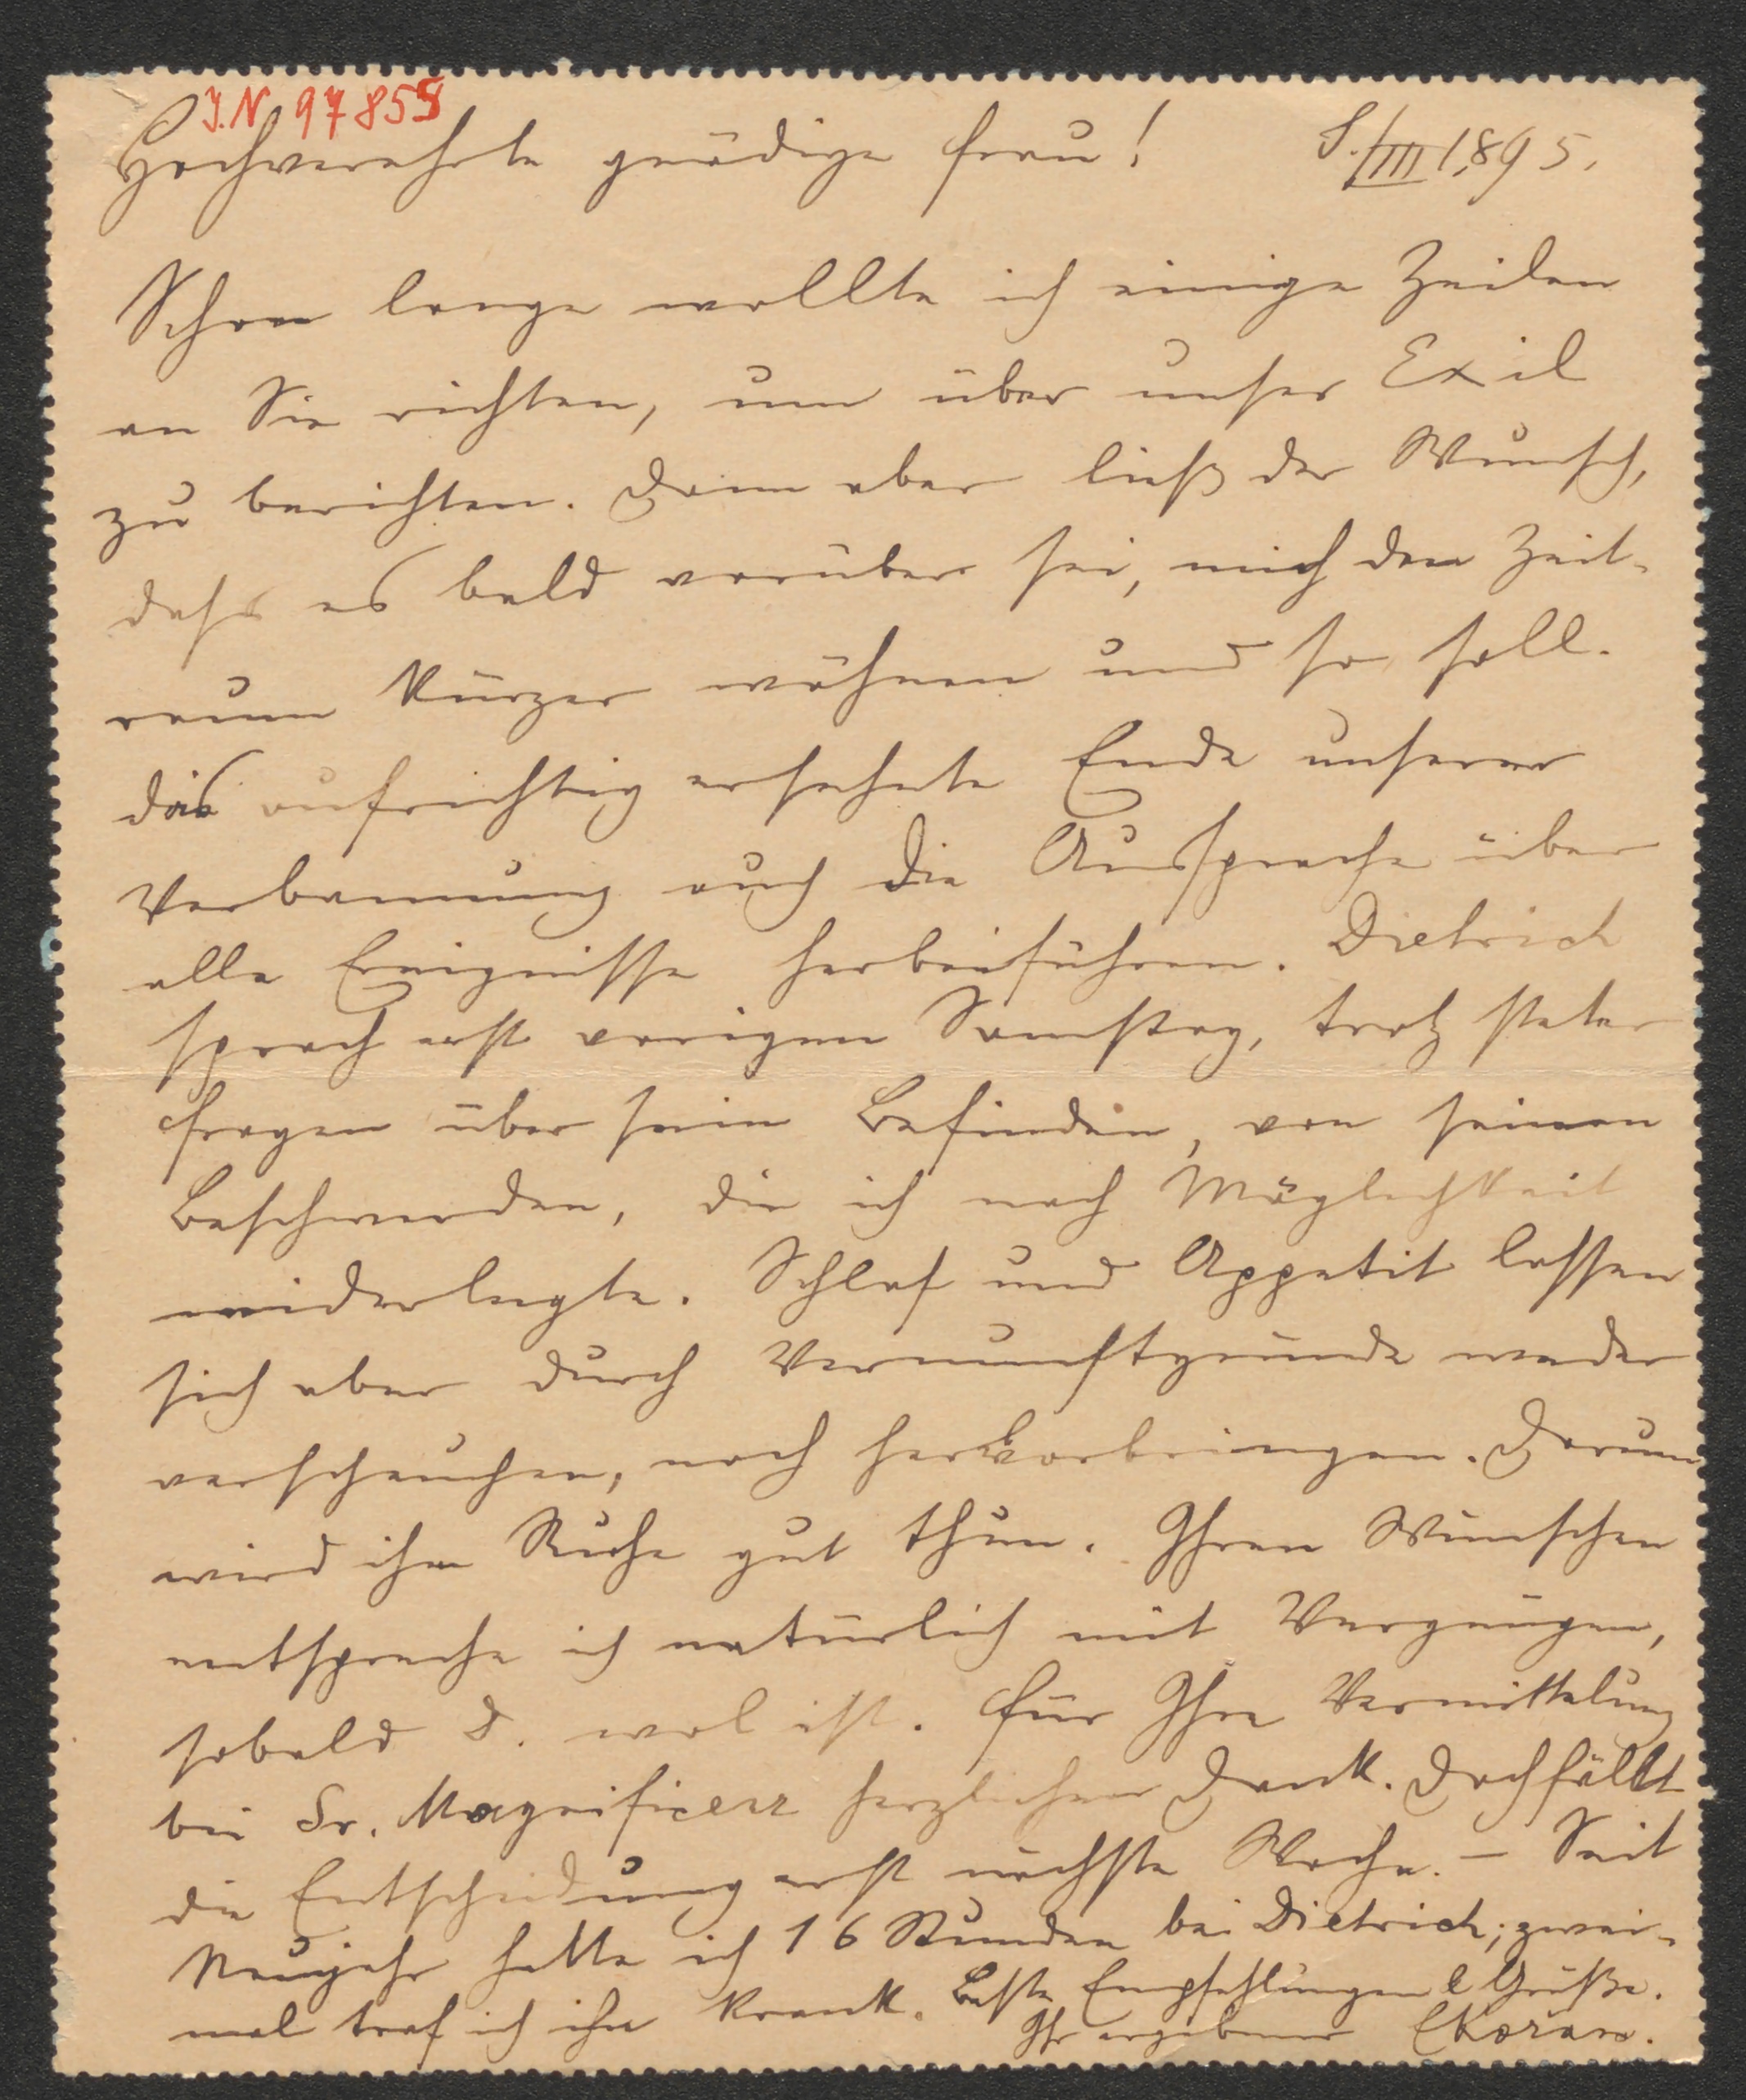 J.N. 97855
Hochverehrte gnädige Frau! 8./III 1895.
Schon lange wollte ich einige Zeilen
an Sie richten, um über unser Exil
zu berichten. Dann aber ließ der Wunsch,
dass es bald vorüber sei, mich den Zeit-
raum kürzer wähnen und so soll
das aufrichtig ersehnte Ende unserer
Verbannung auch die Aussprache über
alle Ereignisse herbeiführen. Dietrich
sprach erst vorigen Samstag, trotz steter
Fragen über sein Befinden, von seinen
Beschwerden, die ich nach Möglichkeit
widerlegte. Schlaf und Appetit lassen
sich aber durch Vernunftgründe weder
verscheuchen, noch hervorbringen. Darum
wird ihm Ruhe gut thun. Ihren Wünschen
entspreche ich natürlich mit Vergnügen,
sobald D. wol ist. Für Ihre Vermittelung
bei Sr. Magnificenz herzlichen Dank. Doch fällt
die Entscheidung erst nächste Woche. – Seit
Neujahr hatte ich 16 Stunden bei Dietrich; zwei-
mal traf ich ihn krank. Beste Empfehlungen & Grüße.
Ihr ergebener